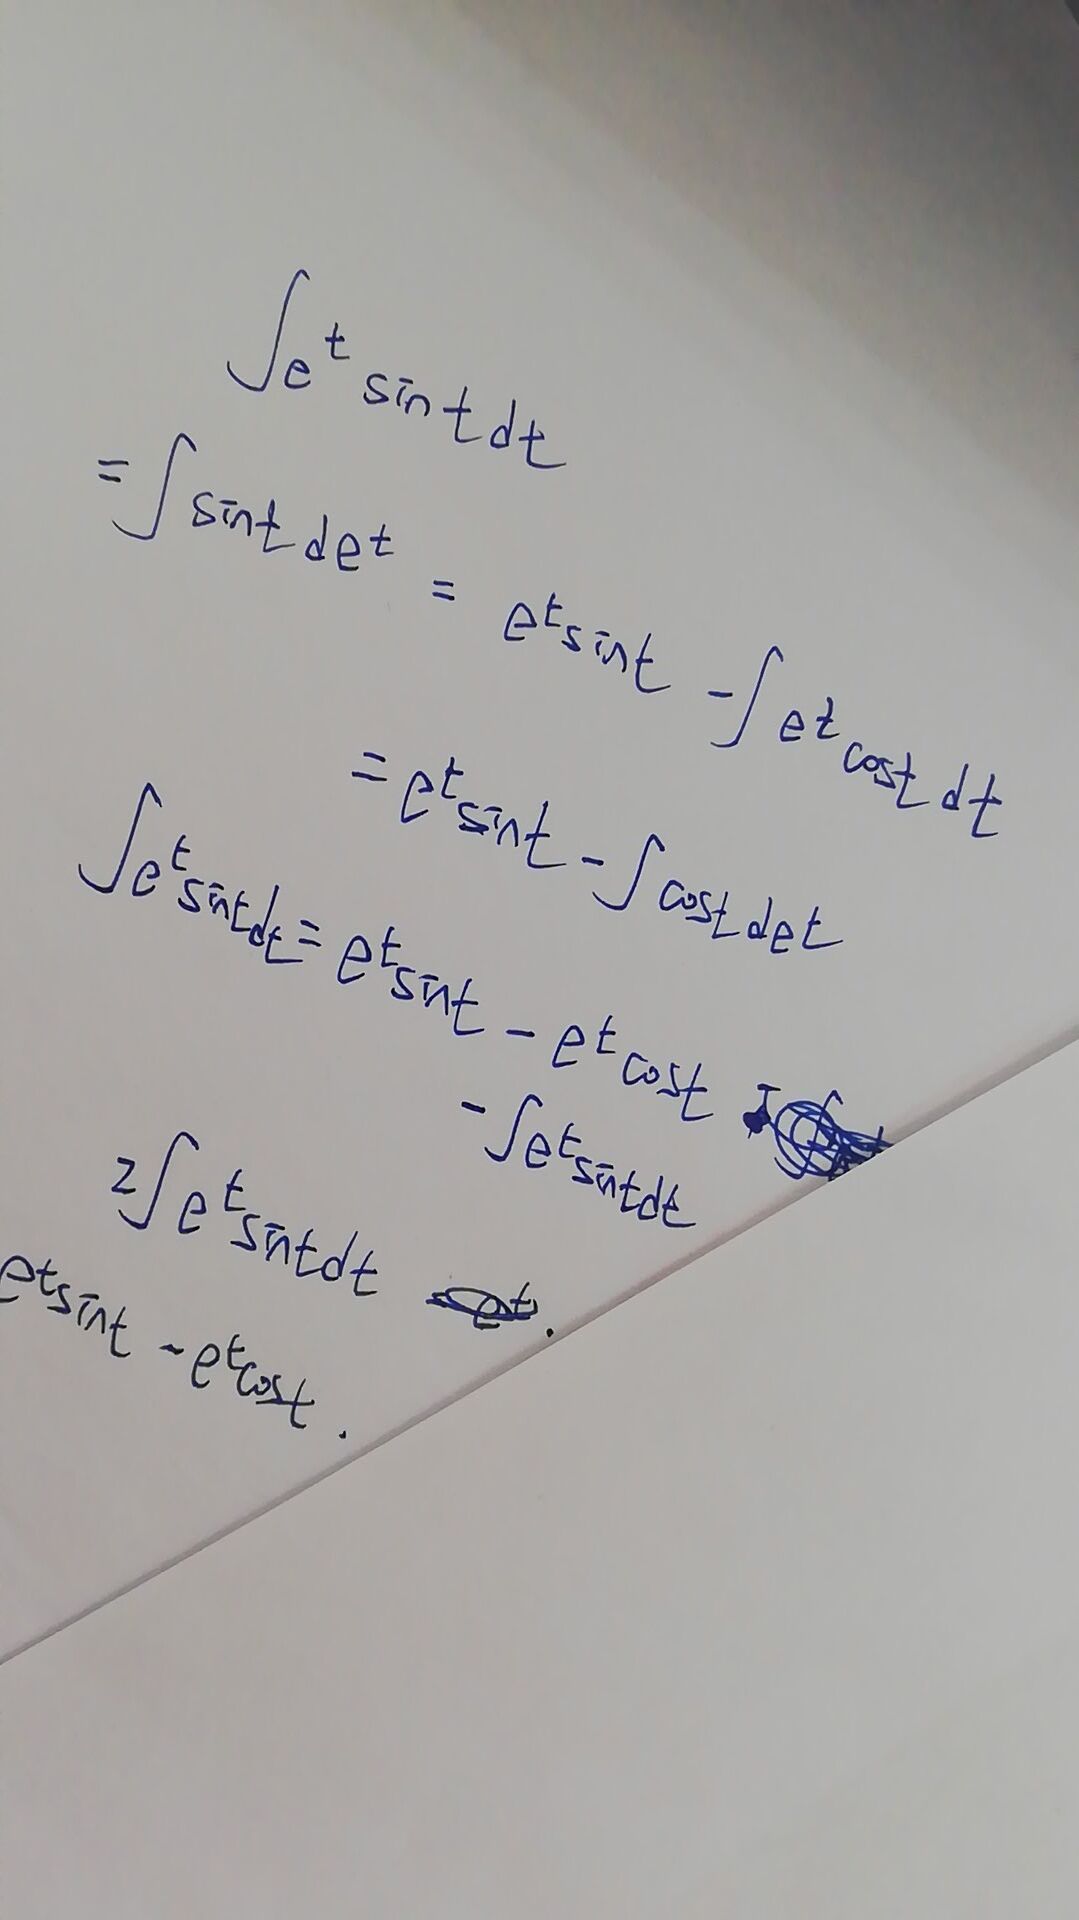 ∫e^t sint dt
= ∫ sint de^t = e^t sint - ∫ e^t cost dt
= e^t sint - ∫ cost de^t
∫e^t sint dt = e^t sint - e^t cost
- ∫e^t sint dt
2∫e^t sint dt
e^t sint - e^t cost.